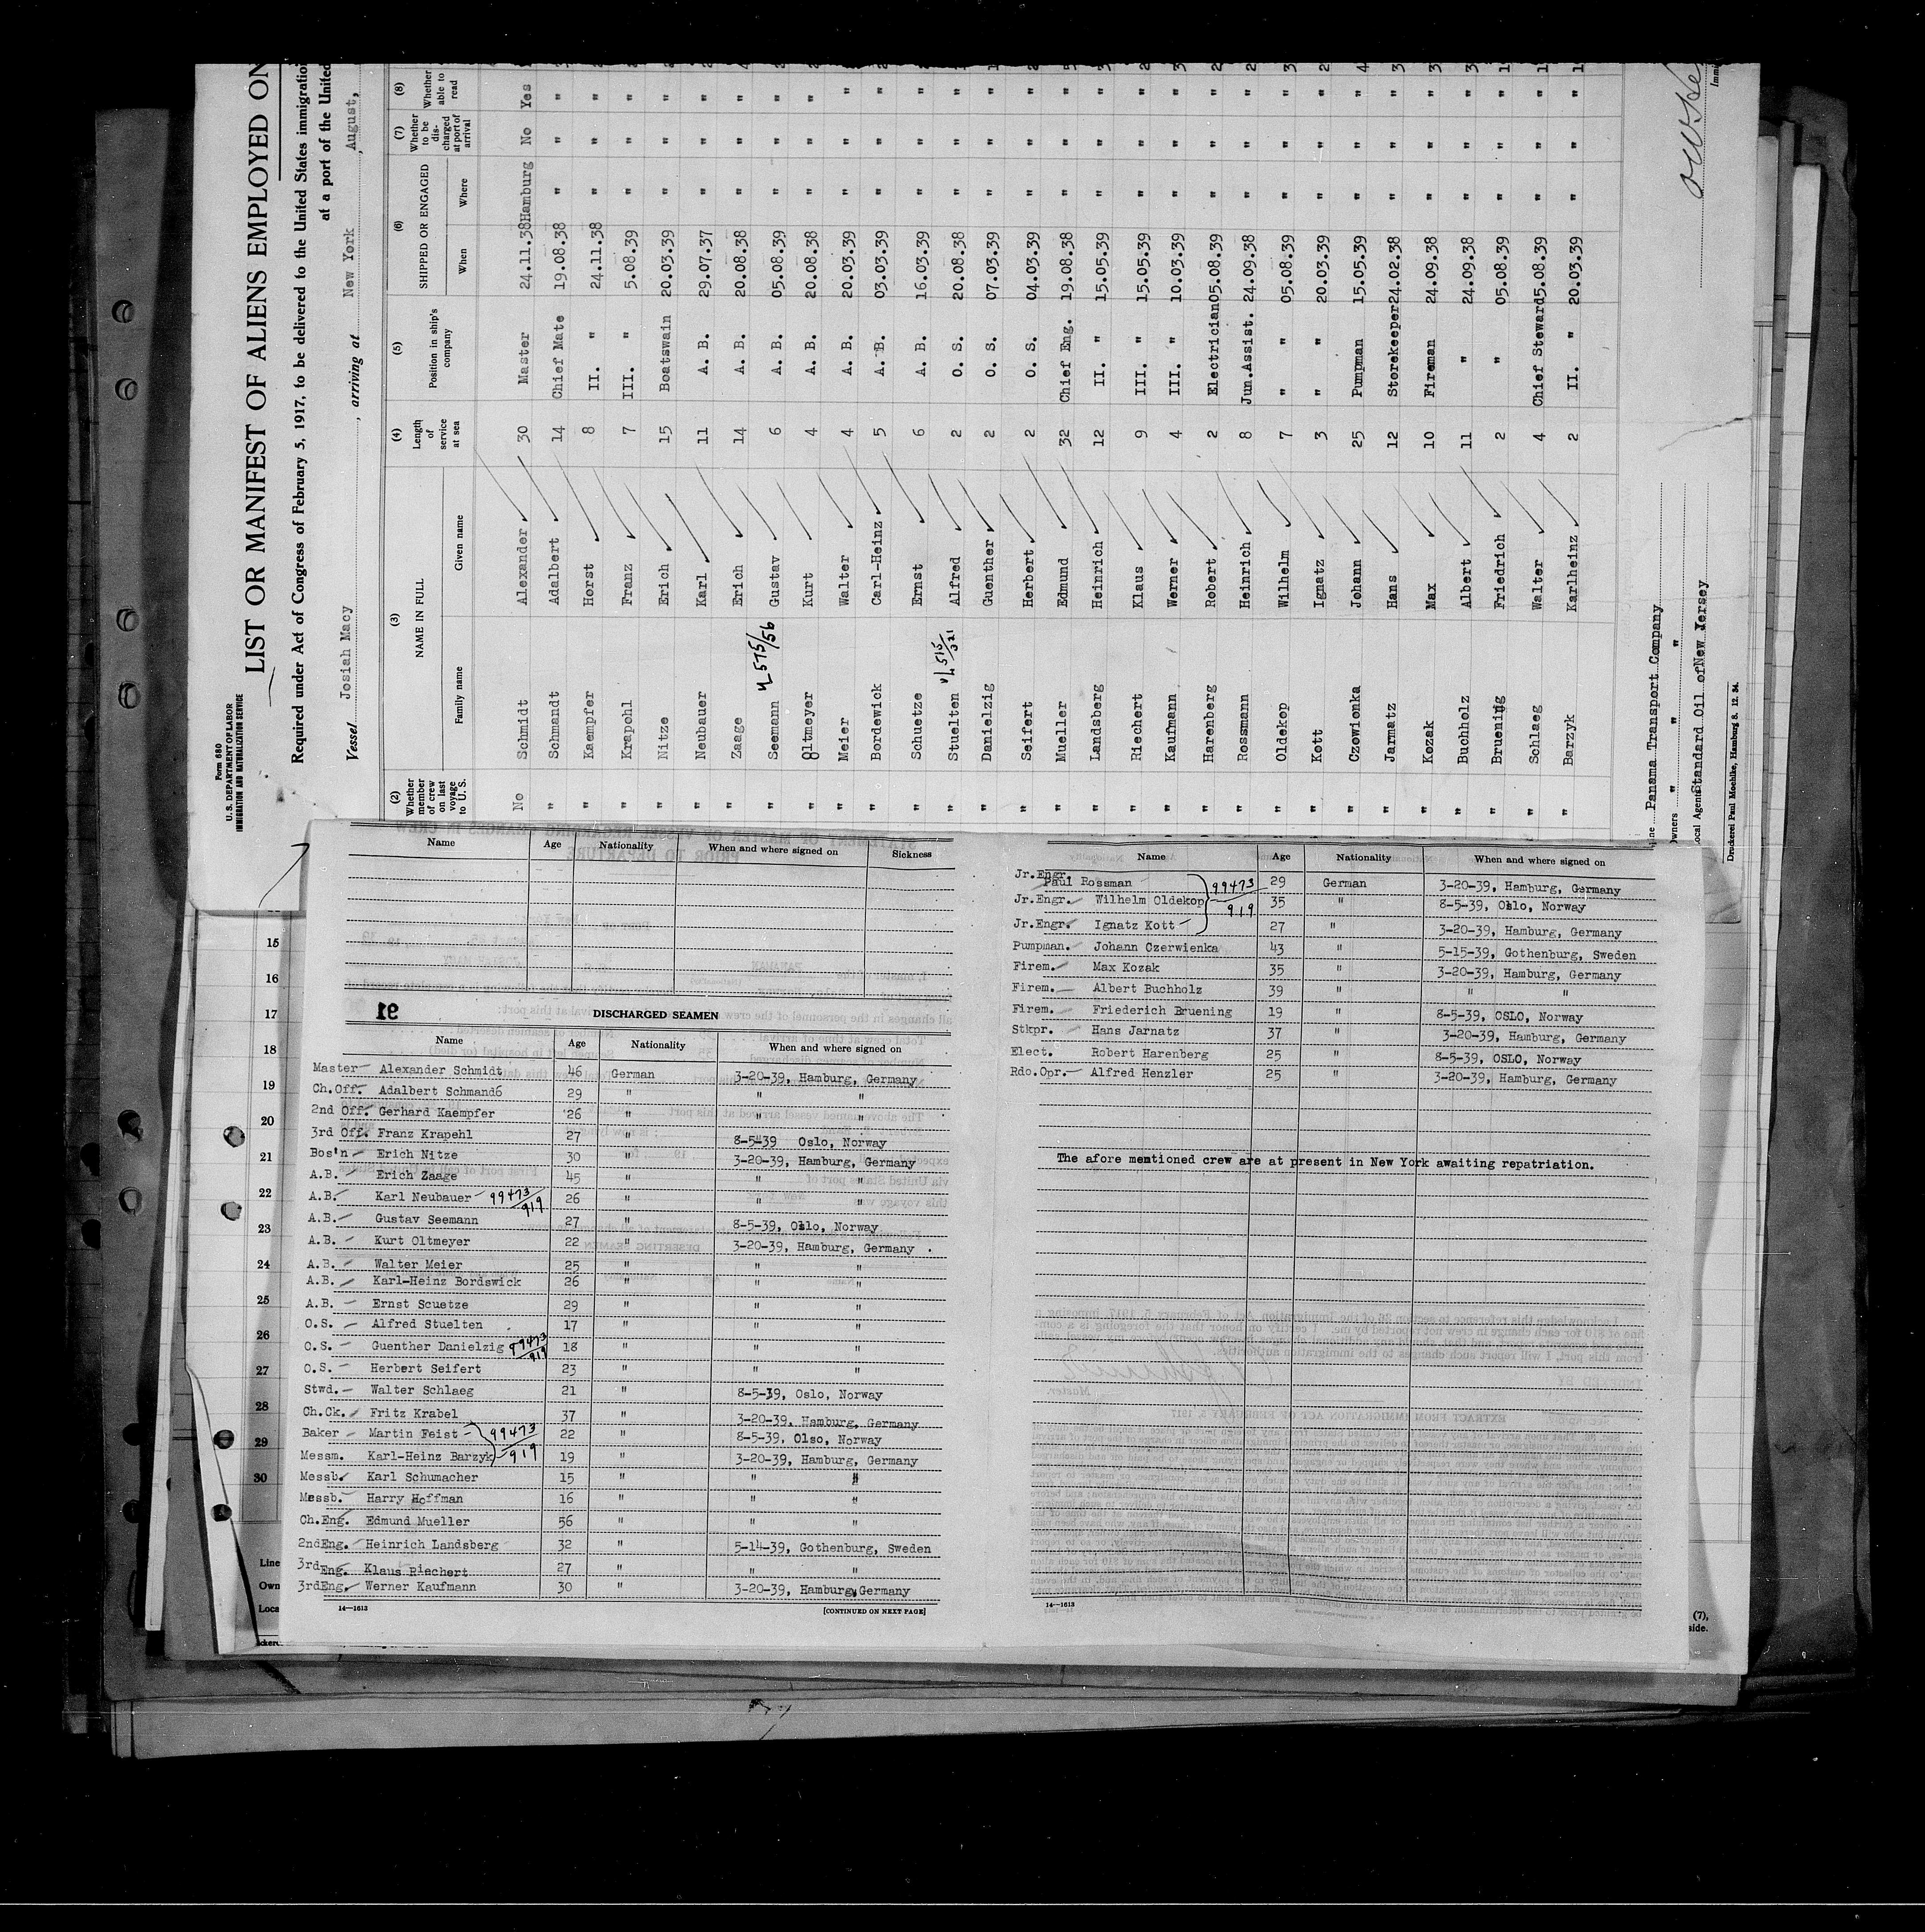 Form 680
U. S. DEPARTMENT OF LABOR
IMMIGRATION AND NATURALIZATION SERVICE
LIST OR MANIFEST OF ALIENS EMPLOYED ON
Required under Act of Congress of February 5, 1917, to be delivered to the United States immigration
at a port of the United
Vessel Josiah Macy, arriving at New York, August,
(2) Whether member of crew on last voyage to U. S. (3) NAME IN FULL Family name Given name (4) Length of service at sea (5) Position in ship's company (6) SHIPPED OR ENGAGED When Where (7) Whether to be discharged at port of arrival (8) Whether able to read
No Schmidt Alexander 30 Master 24.11.38 Hamburg No Yes
" Schmandt Adalbert 14 Chief Mate 19.08.38 " " "
" Kaempfer Horst 8 II. " 24.11.38 " " "
" Krapohl Franz 7 III. " 5.08.39 " " "
" Nitze Erich 15 Boatswain 20.03.39 " " "
" Neubauer Karl 11 A. B. 29.07.37 " " "
" Zaage Erich 14 A. B. 20.08.38 " " "
" Seemann 575/56 Gustav 6 A. B. 05.08.39 " " "
" Oltmeyer Kurt 4 A. B. 20.08.38 " " "
" Meier Walter 4 A. B. 20.03.39 " " "
" Bordewick Carl-Heinz 5 A. B. 03.03.39 " " "
" Schuetze Ernst 6 A. B. 16.03.39 " " "
" Stuelten Alfred 2 O. S. 20.08.38 " " "
" Danielzig Guenther 2 O. S. 07.03.39 " " "
" Seifert Herbert 2 O. S. 04.03.39 " " "
" Mueller Edmund 32 Chief Eng. 19.08.38 " " "
" Landsberg Heinrich 12 II. " 15.05.39 " " "
" Riechert Klaus 9 III. " 15.05.39 " " "
" Kaufmann Werner 4 III. " 10.03.39 " " "
" Harenberg Robert 2 Electrician 05.08.39 " " "
" Rossmann Heinrich 8 Jun.Assist. 24.09.38 " " "
" Oldekop Wilhelm 7 " " 05.08.39 " " "
" Kott Ignatz 3 " " 20.03.39 " " "
" Czowienka Johann 25 Pumpman 15.05.39 " " "
" Jarmatz Hans 12 Storekeeper 24.02.38 " " "
" Kozak Max 10 Fireman 24.09.38 " " "
" Buchholz Albert 11 " 24.09.38 " " "
" Bruening Friedrich 2 " 05.08.39 " " "
" Schlaeg Walter 4 Chief Steward 5.08.39 " " "
" Barzyk Karlheinz 2 II. " 20.03.39 " " "
ine Panama Transport Company
wners " " "
ocal Agents Standard Oil of New Jersey
Druckerei Paul Moehlke, Hamburg 8. 12. 34.
15
16
17
18
19
20
21
22
23
24
25
26
27
28
29
30
Line
Own
Loca
Name Age Nationality When and where signed on Sickness
91
DISCHARGED SEAMEN
Name Age Nationality When and where signed on
Master Alexander Schmidt 46 German 3-20-39, Hamburg, Germany
Ch.Off. Adalbert Schmand6 29 " " "
2nd Off. Gerhard Kaempfer 26 " " "
3rd Off. Franz Krapehl 27 " 8-5-39 Oslo, Norway
Bos'n Erich Nitze 30 " 3-20-39, Hamburg, Germany
A.B. Erich Zaage 45 " " "
A.B. Karl Neubauer 99473/919 26 " " "
A.B. Gustav Seemann 27 " 8-5-39, Oslo, Norway
A.B. Kurt Oltmeyer 22 " 3-20-39, Hamburg, Germany .
A.B. Walter Meier 25 " " "
A.B. Karl-Heinz Bordswick 26 " " "
A.B. Ernst Scuetze 29 " " "
O.S. Alfred Stuelten 17 " " "
O.S. Guenther Danielzig 99473/919 18 " " "
O.S. Herbert Seifert 23 " " "
Stwd. Walter Schlaeg 21 " 8-5-39, Oslo, Norway
Ch.Ck. Fritz Krabel 37 " 3-20-39, Hamburg, Germany
Baker Martin Feist 99473 22 " 8-5-39, Olso, Norway
Messm. Karl-Heinz Barzyk 919 19 " 3-20-39, Hamburg, Germany
Messb. Karl Schumacher 15 " " "
Messb. Harry Hoffman 16 " " "
Ch.Eng. Edmund Mueller 56 " " "
2ndEng. Heinrich Landsberg 32 " 5-14-39, Gothenburg, Sweden
3rdEng. Klaus Riechert 27 " " "
3rdEng. Werner Kaufmann 30 " 3-20-39, Hamburg, Germany
14—1613 [CONTINUED ON NEXT PAGE]
Name Age Nationality When and where signed on
Jr.Engr. Paul Rossman 99473 29 German 3-20-39, Hamburg, Germany
Jr.Engr. Wilhelm Oldekop 919 35 " 8-5-39, Oslo, Norway
Jr.Engr. Ignatz Kott 27 " 3-20-39, Hamburg, Germany
Pumpman. Johann Czerwienka 43 " 5-15-39, Gothenburg, Sweden
Firem. Max Kozak 35 " 3-20-39, Hamburg, Germany
Firem. Albert Buchholz 39 " " "
Firem. Friederich Bruening 19 " 8-5-39, OSLO, Norway
Stkpr. Hans Jarnatz 37 " 3-20-39, Hamburg, Germany
Elect. Robert Harenberg 25 " 8-5-39, OSLO, Norway
Rdo.Opr. Alfred Henzler 25 " 3-20-39, Hamburg, Germany
The afore mentioned crew are at present in New York awaiting repatriation.
14—1613
(7),
side.